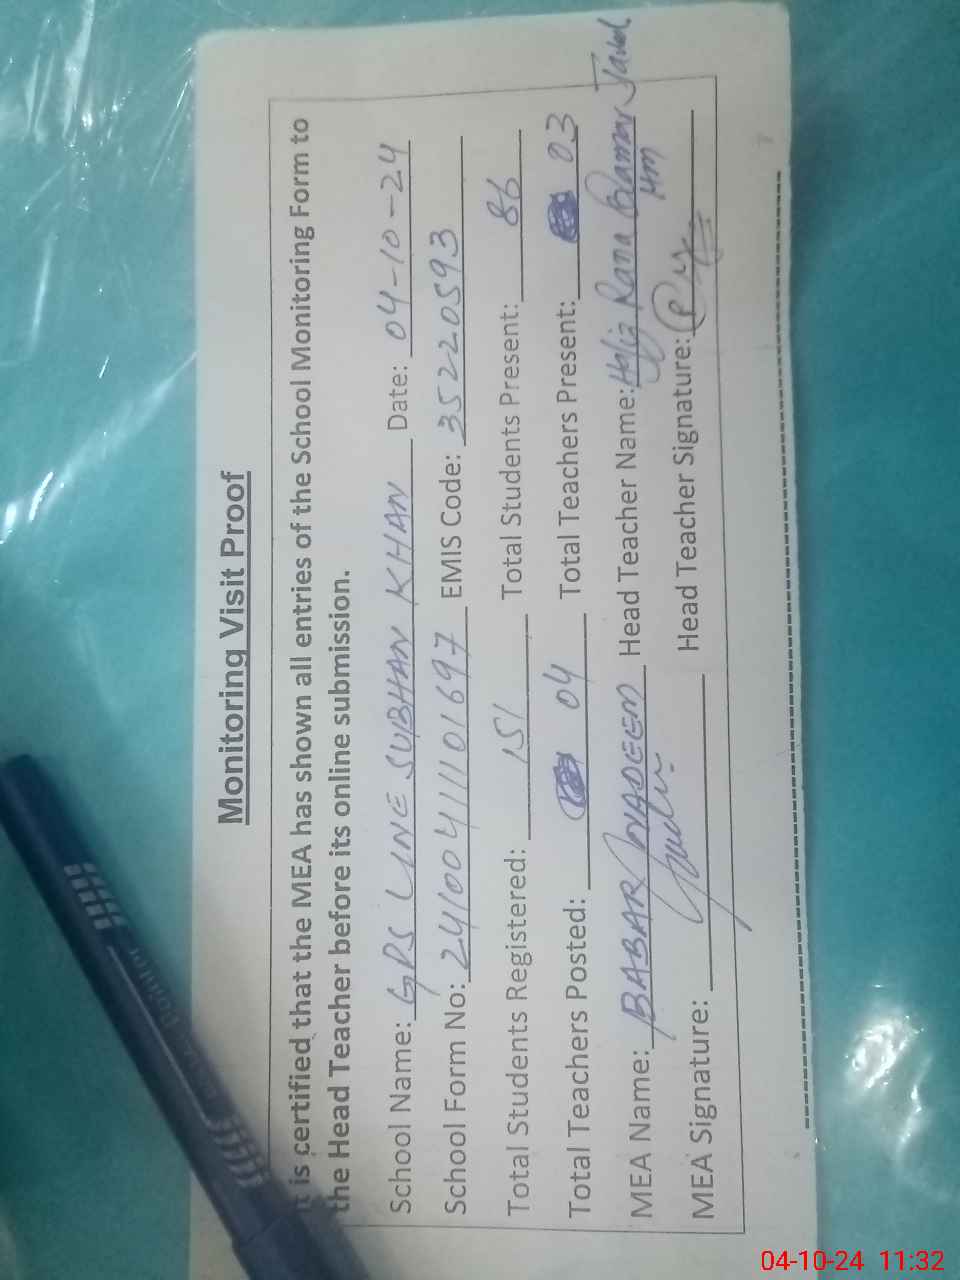 Monitoring Visit Proof
It is certified that the MEA has shown all entries of the School Monitoring Form to
the Head Teacher before its online submission.
School Name: GPS LINE SUBHAN KHAN Date: 04-10-24
School Form No: 24100411101697 EMIS Code: 35220593
Total Students Registered: 151 Total Students Present: 86
Total Teachers Posted: 04 Total Teachers Present: 03
MEA Name: BABAR NADEEM Head Teacher Name: Hafiz Rana
HM
MEA Signature: Head Teacher Signature:
Pointer
04-10-24 11:32